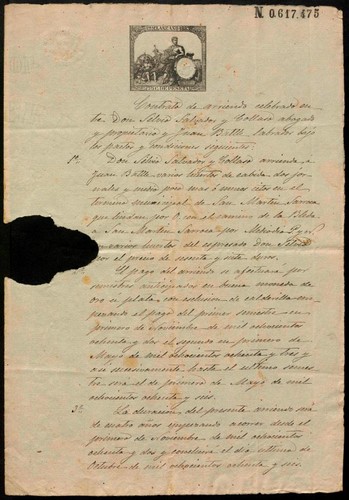 N. 0.617.475
Contrato de arriendo celebrado en-
tre Don Silvio Salvador y Collaso abogado
y propietario y Juan Batlle labrador bajo
los pactos y condiciones siguientes
1º Don Silvio Salvador y Collaso arrienda a
Juan Batlle varios huertos de cabida dos jor-
nales y medio poco mas ó menos sitos en el
termino municipal de San Martin Sarroca
que lindan por O. con el camino de la Bleda
a San Martin Sarroca por Mediodia P. y N.
con varios huertos del espresado Don Silvio
por el precio de sesenta y siete duros.
El pago del arriendo se efectuará por
semestres anticipados en buena moneda de
oro ó plata, con esclusion de calderilla em-
pezando el pago del primer semestre en
primero de Noviembre de mil ochocientos ochenta
y dos el segundo en primero de
Mayo de mil ochocientos ochenta y tres y
asi sucesivamente hasta el ultimo semes-
tre que será el de primero de Mayo de mil
ochocientos ochenta y seis.
3º La duracion del presente arriendo será
de cuatro años empezando a correr desde el
primero de Noviembre de mil ochocientos
ochenta y dos y concluirá el dia ultimo de
Octubre de mil ochocientos ochenta y seis.